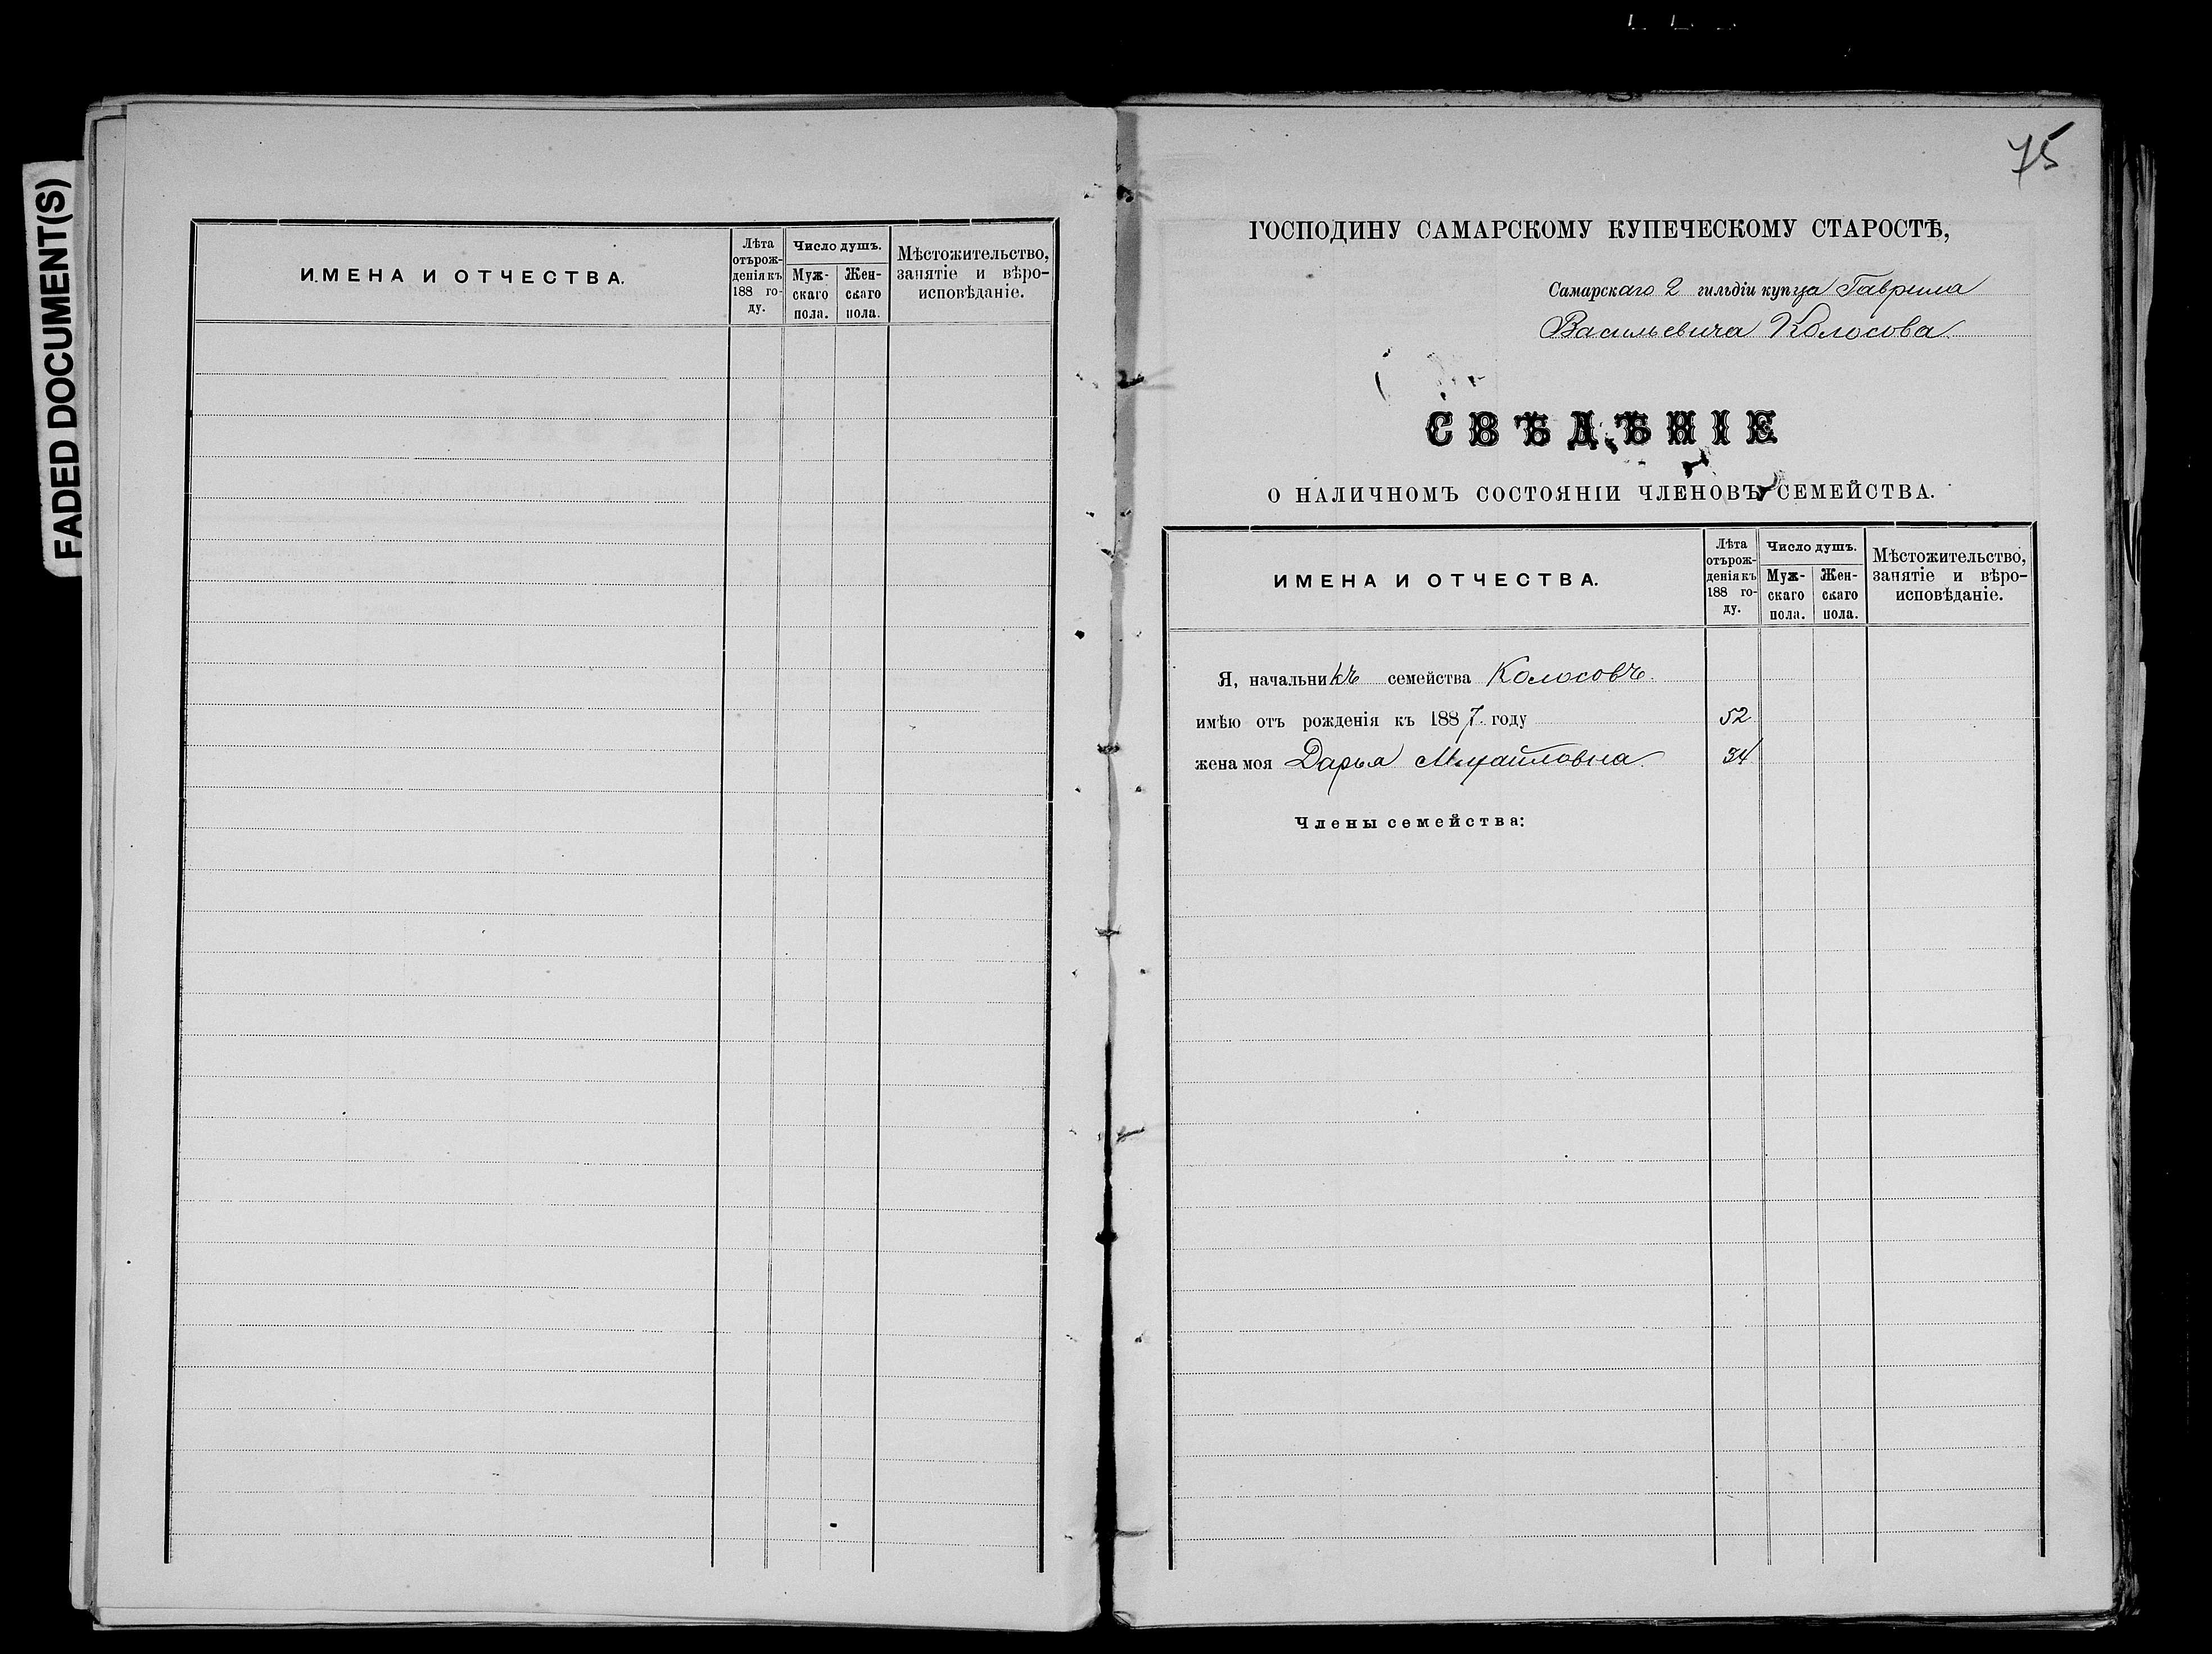 FADED DOCUMENT(S)
ИМЕНА И ОТЧЕСТВА.
Лѣта
отърож-
денія къ
188 го-
ду.
Число душъ.
Муж-
скаго
пола.
Жен-
скаго
пола.
Мѣстожительство,
занятіе и вѣро-
исповѣданіе.
75
ГОСПОДИНУ САМАРСКОМУ КУПЕЧЕСКОМУ СТАРОСТѢ,
Самарскаго 2 гильдіи купца Гаврила
Васильевича Колосова
СВѢДѢНІЕ
О НАЛИЧНОМЪ СОСТОЯНІИ ЧЛЕНОВЪ СЕМЕЙСТВА.
ИМЕНА И ОТЧЕСТВА.
Лѣта
отърож-
денія къ
188 го-
ду.
Число душъ.
Муж-
скаго
пола.
Жен-
скаго
пола.
Мѣстожительство,
занятіе и вѣро-
исповѣданіе.
Я, начальникъ семейства Колосовъ
имѣю отъ рожденія къ 1887 году 52
жена моя Дарья Михайловна 34
Члены семейства: